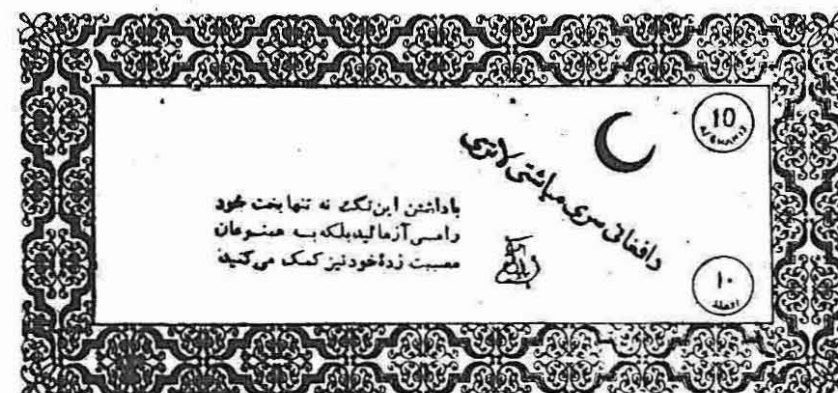 10
AFGHANIS
دافغانی سری میاشتی لاتری
باداشتن این تکت نه تنها بخت خود
رامی آزمائید بلکه به همنوعان
مصیبت زدهٔ خود نیز کمک می‌کنید
۱۰
افغانی